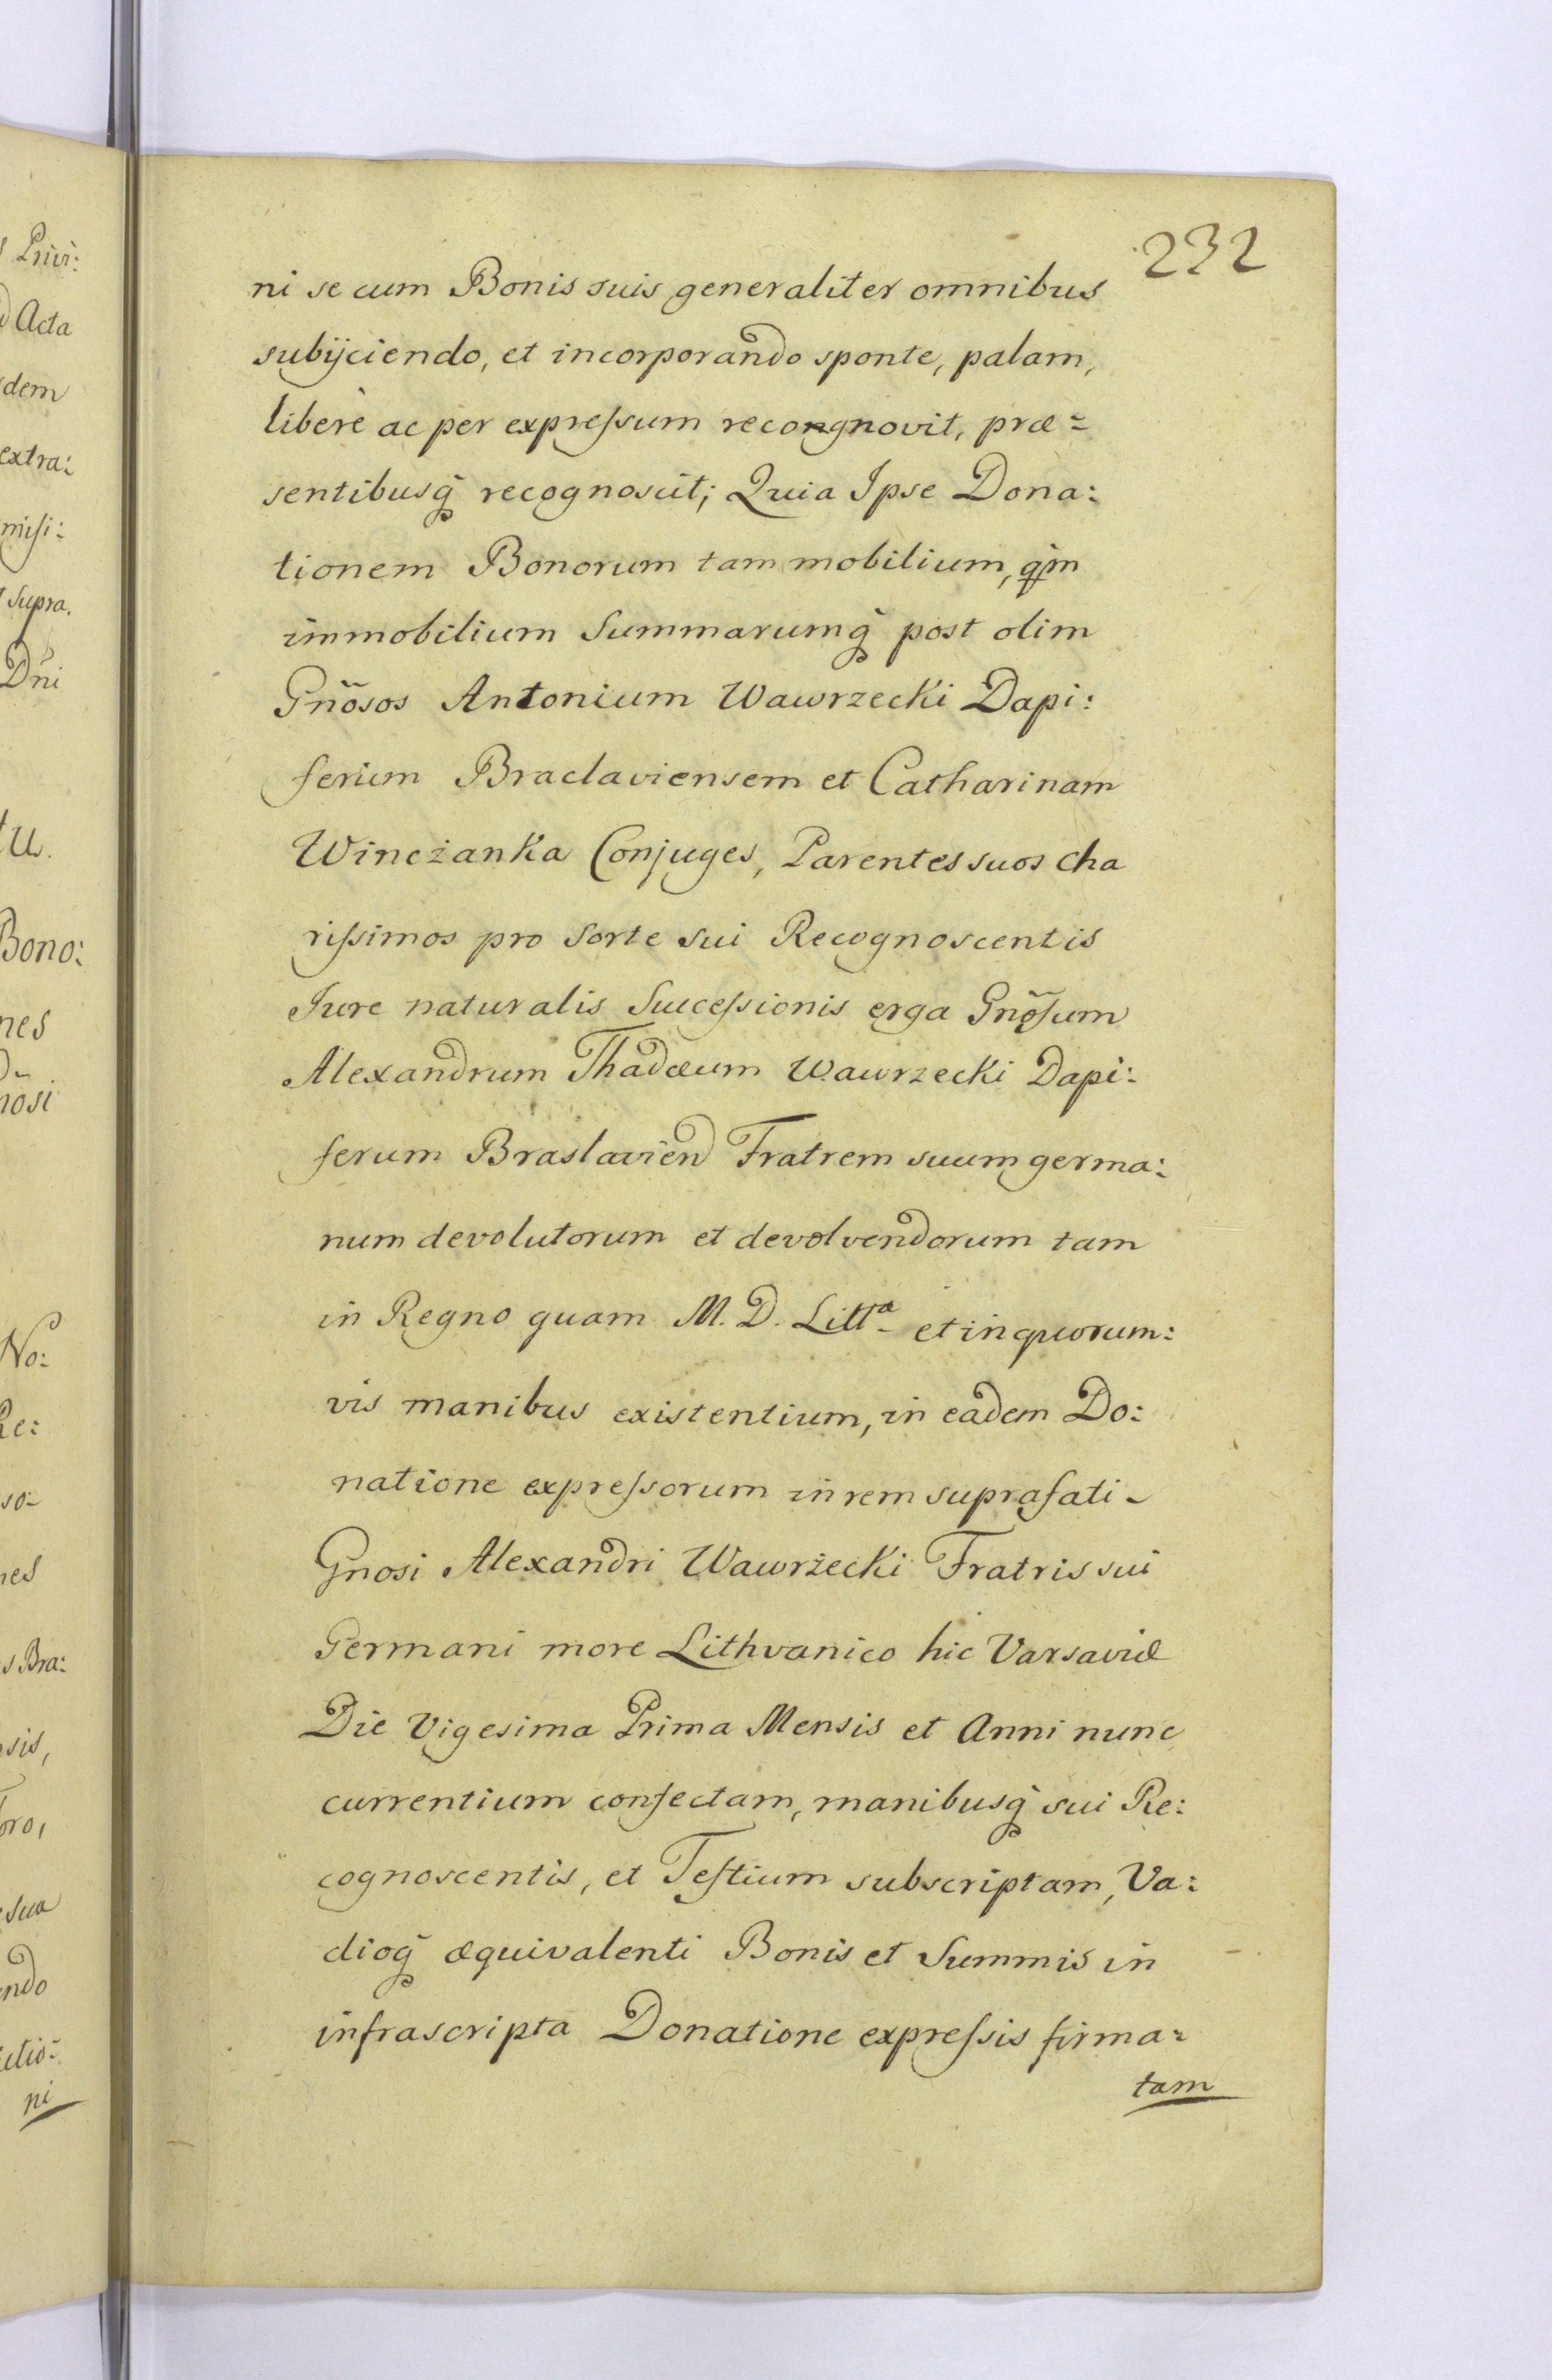 232
ni se cum Bonis suis generaliter omnibus
subijciendo, et incorporando sponte, palam,
liberè ac per expressum recongnovit, præ=
sentibusq̃ recognoscit; Quia Ipse Dona:
tionem Bonorum tam mobilium, q̃m
immobilium Summarumq̃ post olim
Gñosos Antonium Wawrzecki Dapi:
ferum Braclaviensem et Catharinam
Winczanka Conjuges, Parentes suos Cha
rissimos pro Sorte sui Recognoscentis
Jure naturalis Successionis erga Gñosum
Alexandrum Thadæum Wawrzecki Dapi:
ferum Braslavień Fratrem suum germa:
num devolutorum et devolvendorum tam
in Regno quam M. D. Littᵃ et in quorum:
vis manibus existentium, in eadem Do:
natione expressorum in rem suprafati-
Gñosi Alexandri Wawrżecki Fratris sui
Germani more Lithvanico hic Varsaviæ
Die Vigesima Prima Mensis et Anni nunc
currentium confectam, manibusq̃ sui Re:
cognoscentis, et Testium subscriptam, Va:
dioq̃ æquivalenti Bonis et Summis in
infrascripta Donatione expressis firma=
tam
Acta
dem
extra:
supra.
Dñi
Bono:
nes
No:
Re:
nes
s Bra:
sua
ni